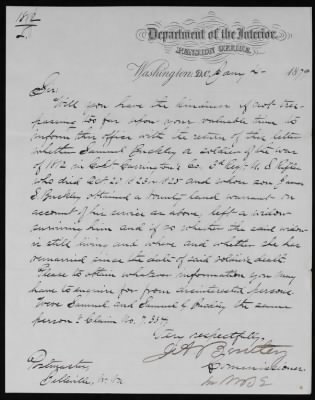 1812
Department of the Interior,
PENSION OFFICE,
Washington, D.C. Jany 2 187
Sir,
Will you have the kindness if not tres-
passing too far upon your valuable time to
inform this office with the return of this letter
whether Samuel Buckley a soldier of the war
of 1812 in Capt Carrington's Co. 3d Regt U.S. Rifles
who died Oct 20 1823 or 1825 and whose son James
S. Buckley obtained a bounty land warrant on
account of his service as above, left a widow
surviving him and if so whether the said widow
is still living and where and whether she has
remarried since the date of said soldier's death
Please to obtain whatever information you may
have to enquire for from disinterested persons.
Were Samuel and Samuel G Buckley the same
person? Claim No. 7.
Very respectfully,
J A Bentley
Commissioner.
Postmaster,